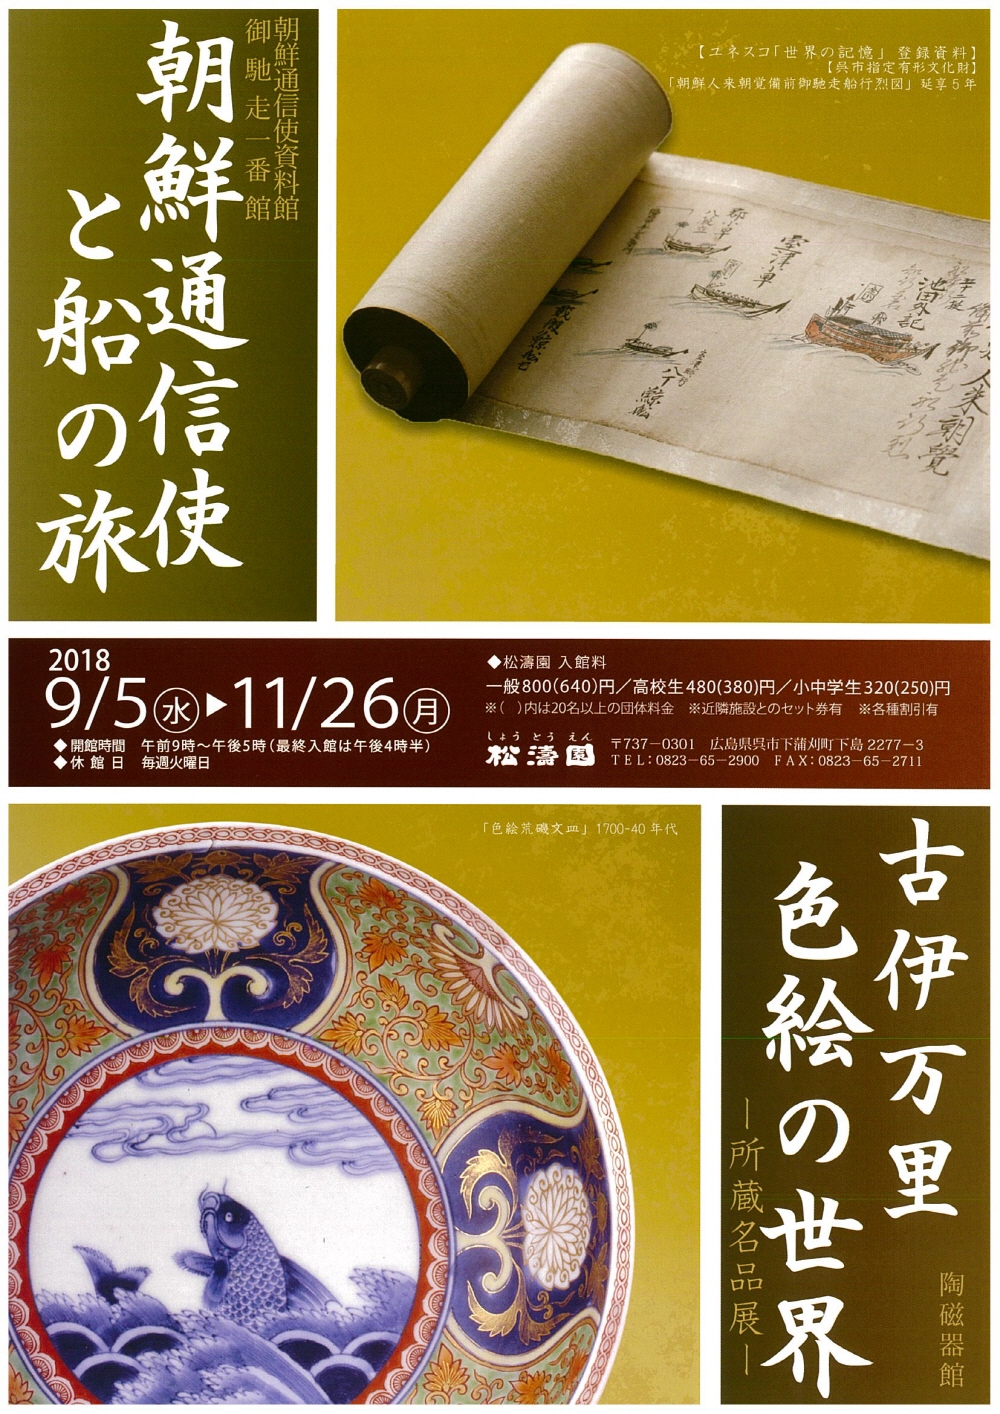 朝鮮通信使資料館
御馳走一番館
朝鮮通信使
と船の旅
【ユネスコ「世界の記憶」 登録資料】
【呉市指定有形文化財】
「朝鮮人来朝覚備前御馳走船行烈図」 延享5年
室津ノ車
池田外記
人来朝覺
2018
9/5㊌▶11/26㊊
◆開館時間 午前9時～午後5時（最終入館は午後4時半）
◆休館日 毎週火曜日
◆松濤園 入館料
一般800(640)円／高校生480(380)円／小中学生320(250)円
※（ ）内は20名以上の団体料金 ※近隣施設とのセット券有 ※各種割引有
しょうとうえん
松濤園
〒737－0301 広島県呉市下蒲刈町下島2277－3
TEL：0823－65－2900 FAX：0823－65－2711
「色絵荒磯文皿」1700-40年代
古伊万里
色絵の世界
―所蔵名品展―
陶磁器館